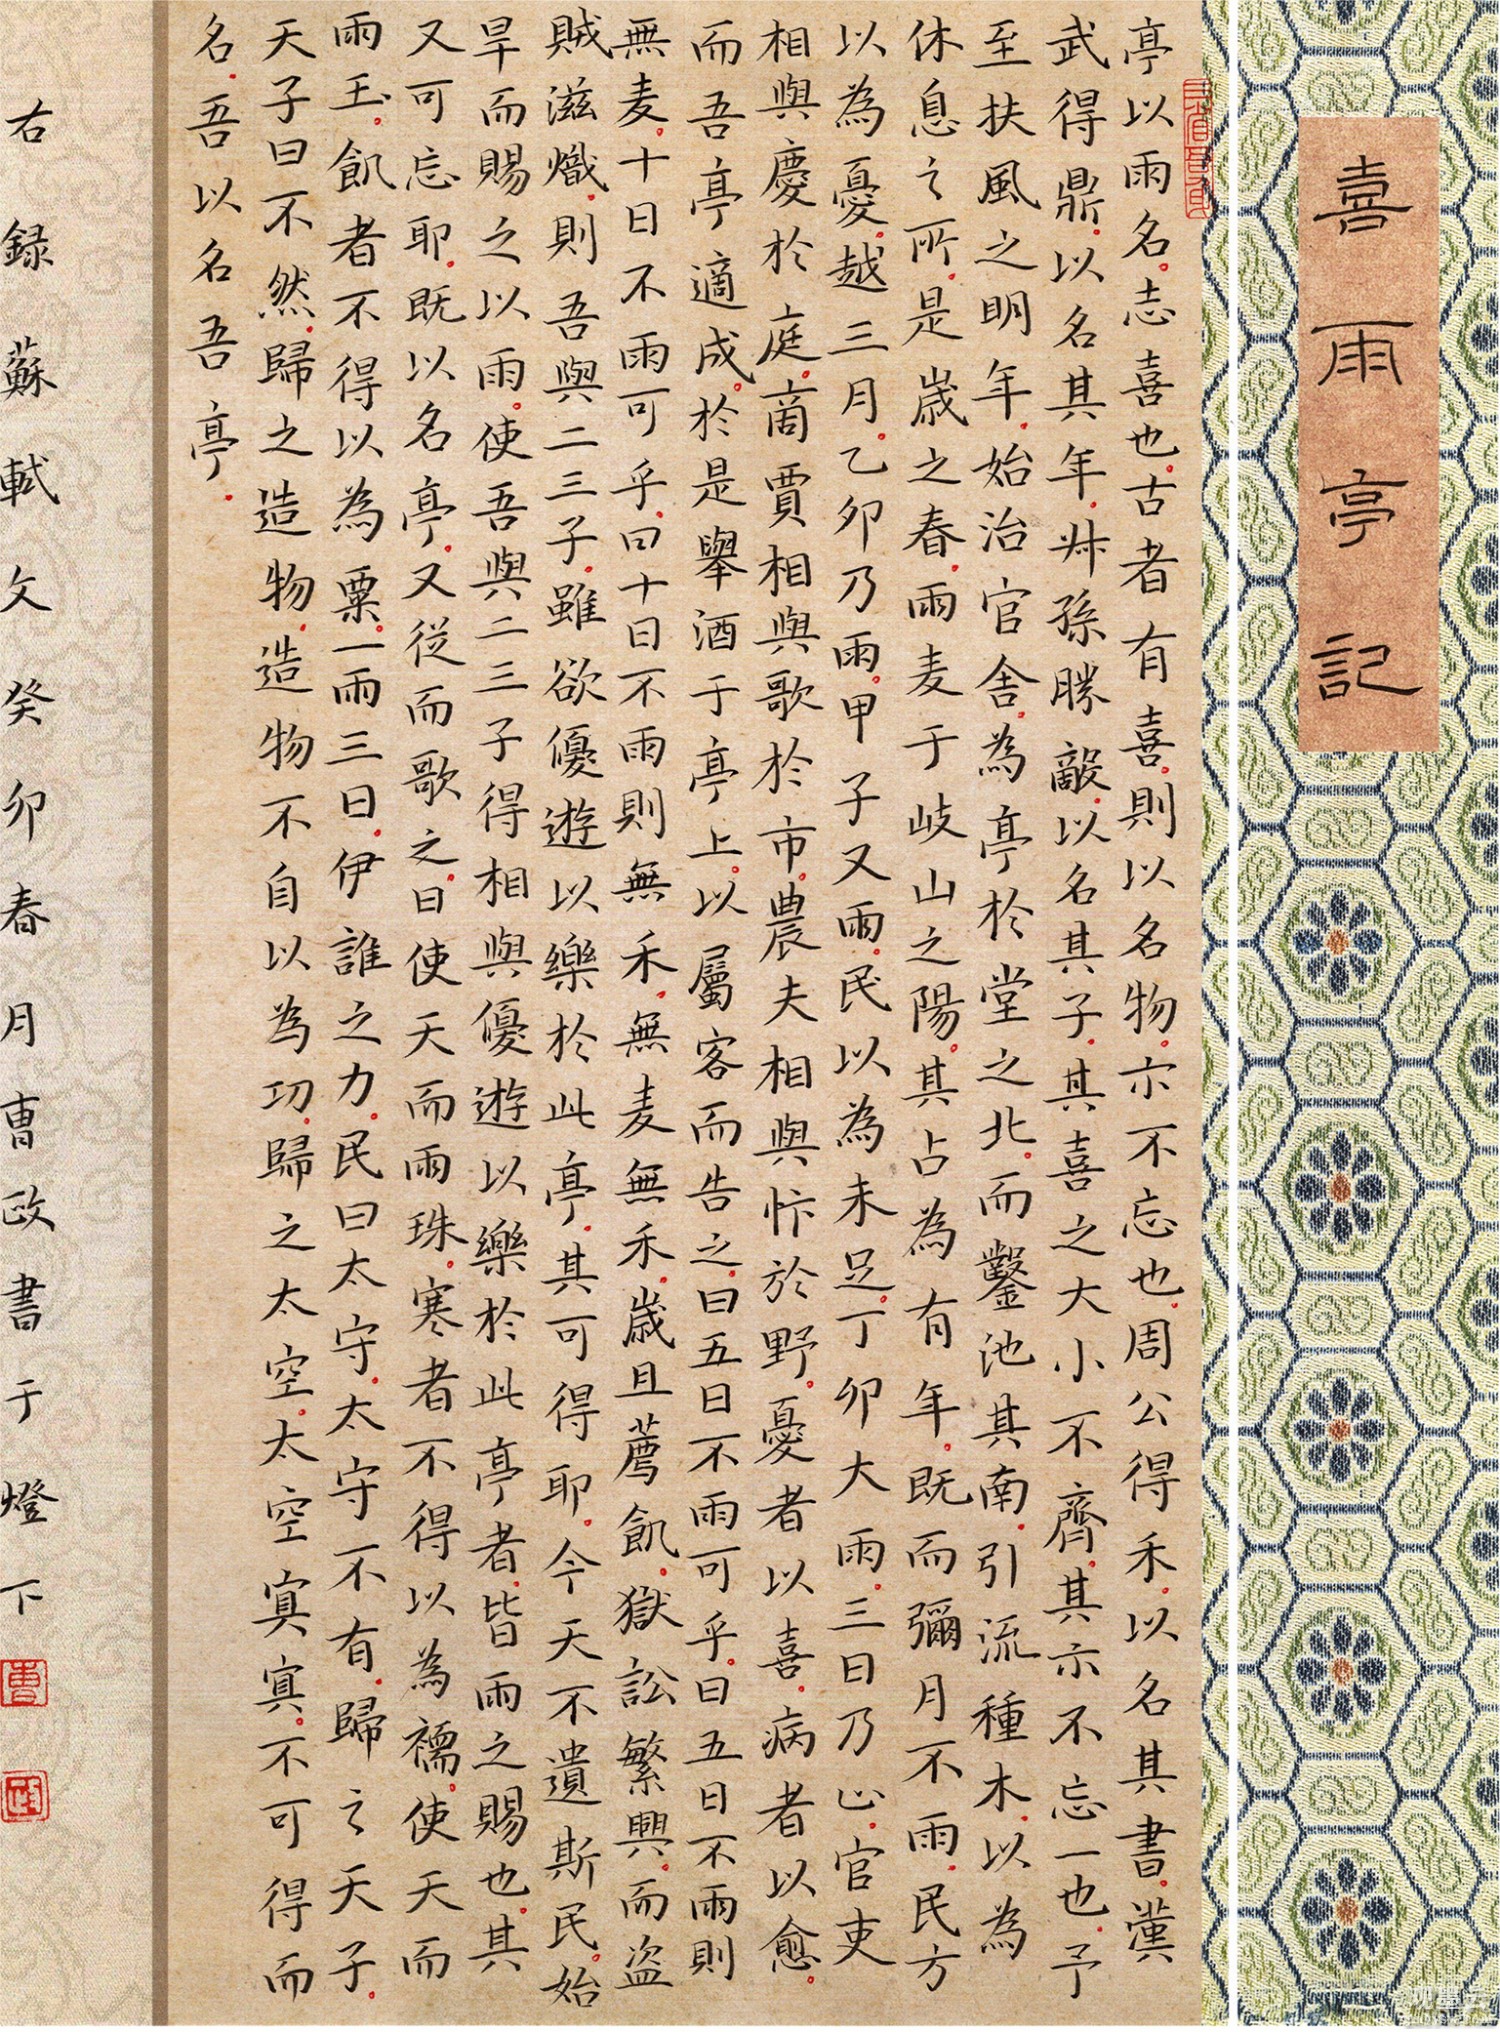 喜雨亭記
三省吾身
亭以雨名。志喜也。古者有喜。則以名物。亦不忘也。周公得禾。以名其書。漢
武得鼎。以名其年。叔孫勝敵。以名其子。其喜之大小不齊。其示不忘一也。予
至扶風之明年。始治官舍。為亭於堂之北。而鑿池其南。引流種木。以為
休息之所。是歲之春。雨麦于岐山之陽。其占為有年。既而彌月不雨。民方
以為憂。越三月。乙卯乃雨。甲子又雨。民以為未足。丁卯大雨。三日乃止。官吏
相與慶於庭。商賈相與歌於市。農夫相與忭於野。憂者以喜。病者以愈。
而吾亭適成。於是舉酒于亭上。以屬客而告之。曰五日不雨可乎。曰五日不雨則
無麦。十日不雨可乎。曰十日不雨則無禾。無麦無禾。歲且薦飢。獄訟繁興。而盜
賊滋熾。則吾與二三子。雖欲優遊以樂於此亭。其可得耶。今天不遺斯民。始
旱而賜之以雨。使吾與二三子得相與優遊以樂於此亭者。皆雨之賜也。其
又可忘耶。既以名亭。又從而歌之。曰使天而雨珠。寒者不得以為襦。使天而
雨玉。飢者不得以為粟。一雨三日。伊誰之力。民曰太守。太守不有。歸之天子。
天子曰不然。歸之造物。造物不自以為功。歸之太空。太空冥冥。不可得而
名。吾以名吾亭。
右録蘇軾文癸卯春月曹政書于燈下
曹
政